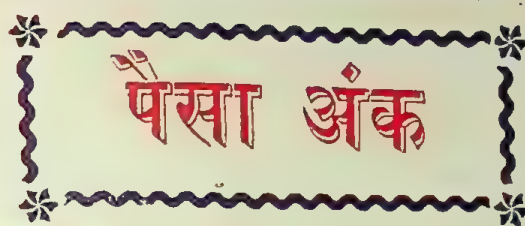 पैसा अंक